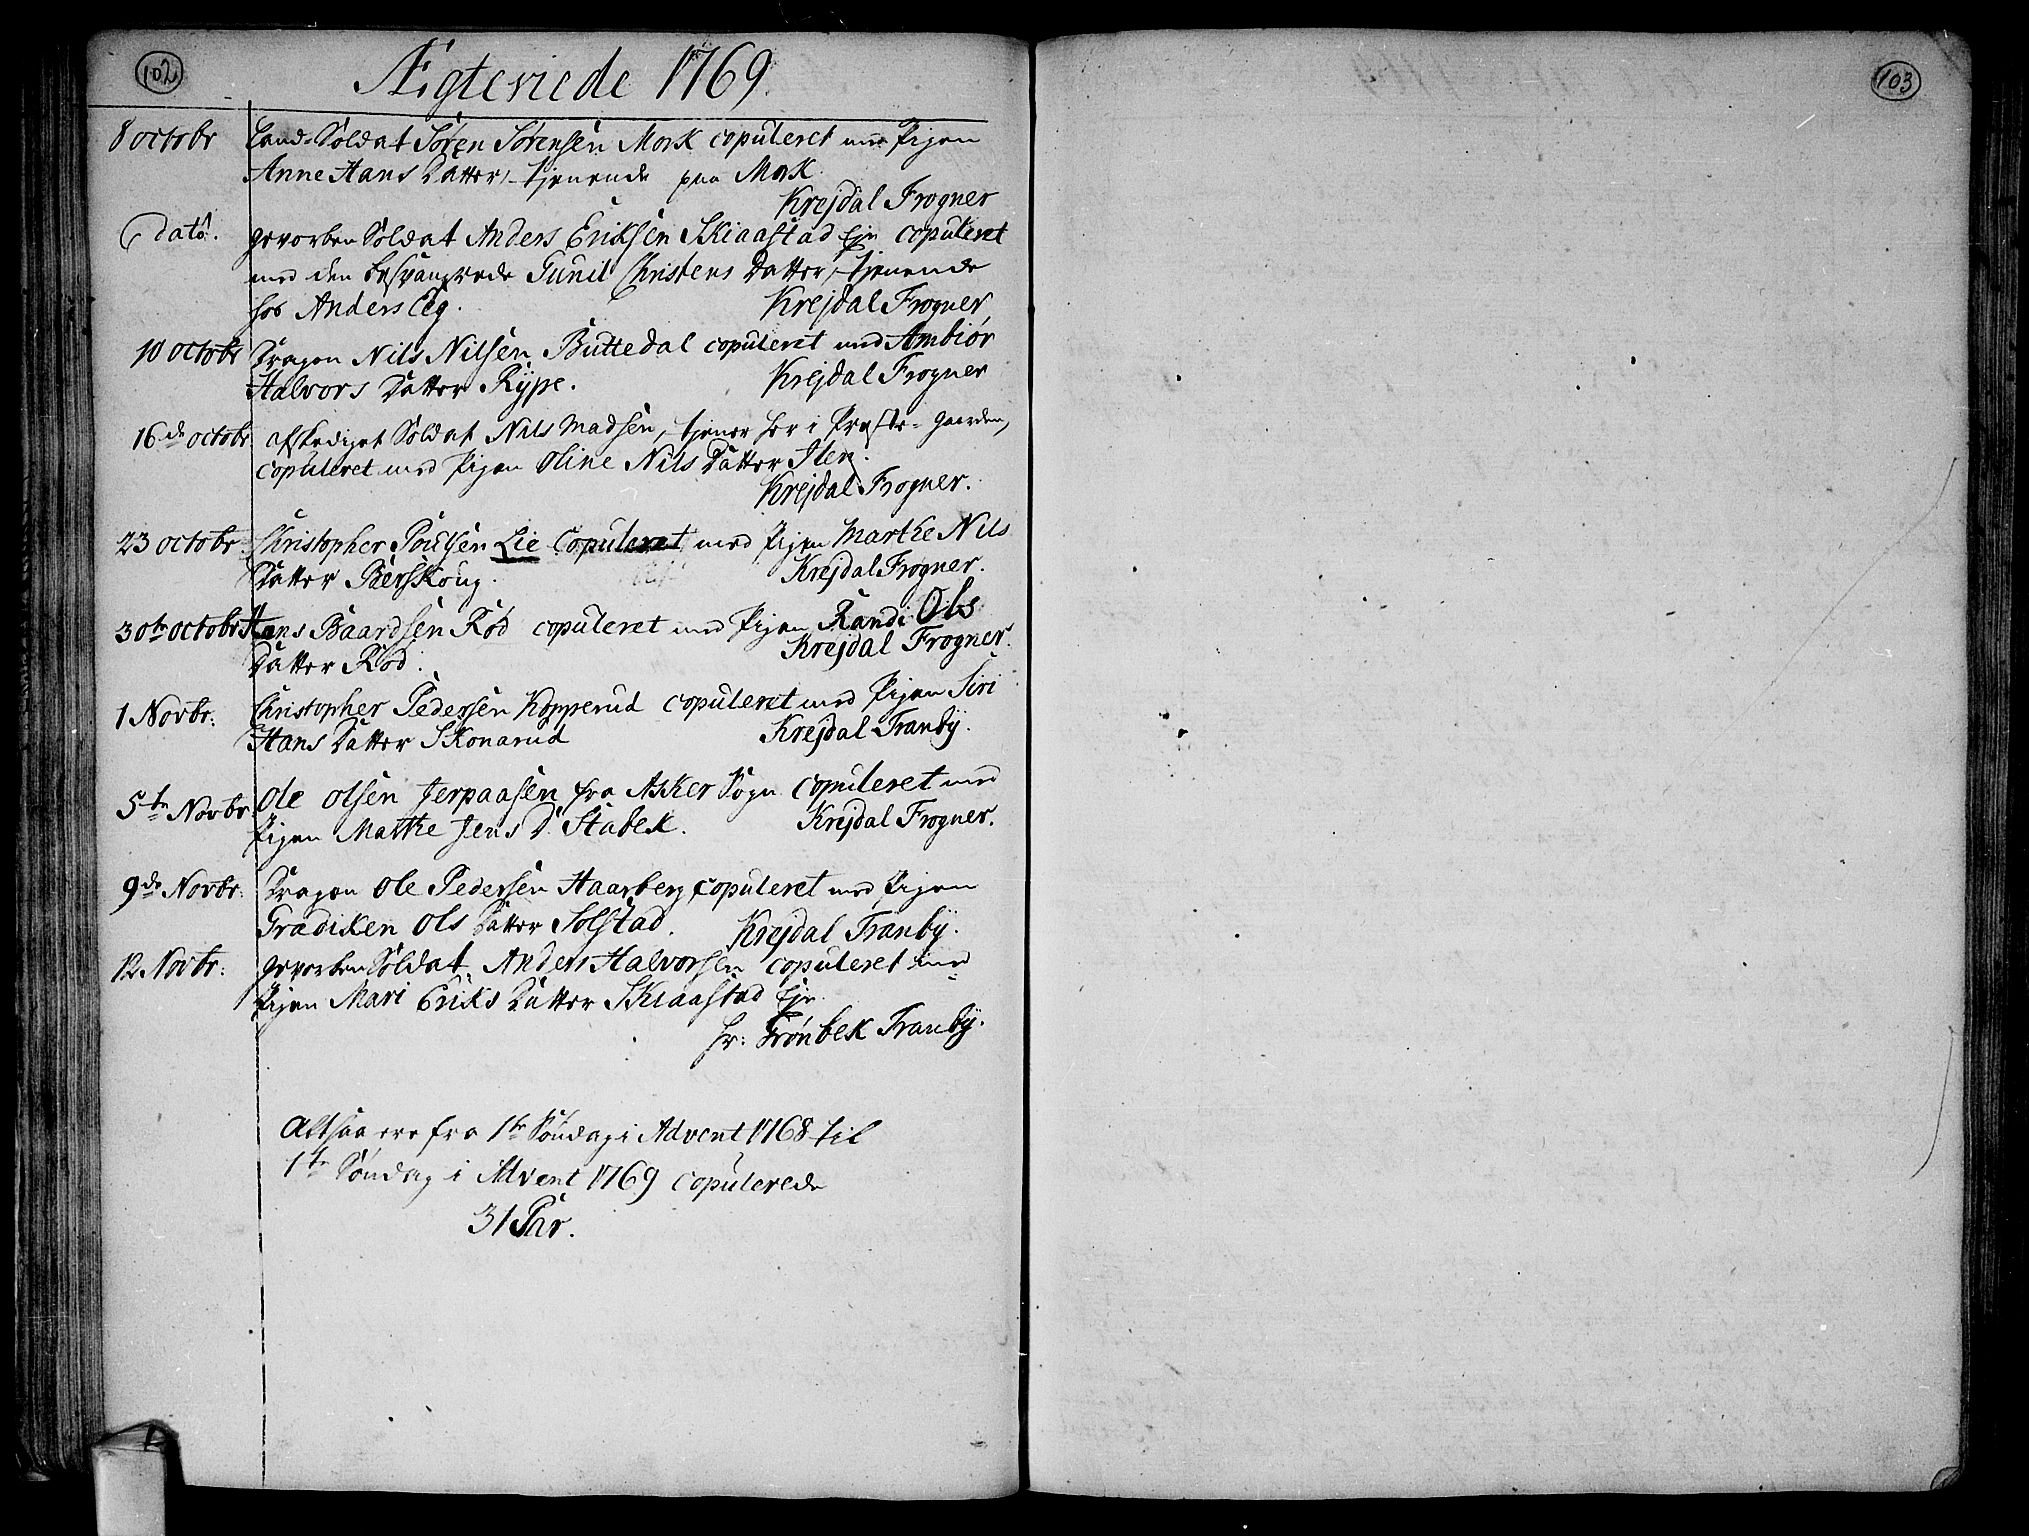 102
Ægteviede 1769.
8 octobr Land-Soldat Sören Sörensen Mork copuleret med Pigen
Anne Hans Datter, tjenende paa Mork.
Krejdal Frogner
dato. gevorben Soldat Anders Eriksen Skiaastad Eje copuleret
med den besvangrede Gunil Christens Datter, tjenende
hos Anders Eeg.
Krejdal Frogner
10 octobr Dragon Nils Nilsen Buttedal copuleret med Ambiør
Halvors Datter Rype.
Krejdal Frogner
16de octobr afskediget Soldat Nils Madsen, tjener her i Præste-Gaarden,
copuleret med Pigen Oline Nils Datter Ilen.
Krejdal Frogner.
23 octobr Christopher Poulsen Lie copuleret med Pigen Marthe Nils
Datter Berskoug.
Krejdal Frogner.
30te octobr Hans Baardsen Röd copuleret med Pigen Randi Ols
Datter Röd.
Krejdal Frogner.
1 Novbr: Christopher Pedersen Kopperud copuleret med Pigen Siri
Hans Datter Skonarud
Krejdal Tranby.
5te Novbr Ole Olsen Jerpaasen fra Asker Sogn copuleret med
Pigen Marthe Jens D. Stabek.
Krejdal Frogner.
9de Novbr: Dragon Ole Pedersen Haarberg copuleret med Pigen
Gradiken Ols Datter Solstad.
Krejdal Tranby.
12 Novbr: gevorben Soldat Anders Halvorsen copuleret med
Pigen Mari Eriks Datter Skiaastad Eje.
Hr: Grönbek Tranby.
Altsaa ere fra 1te Söndag i Advent 1768 til
1te Söndag i Advent 1769 copulerede
31 Par.
103